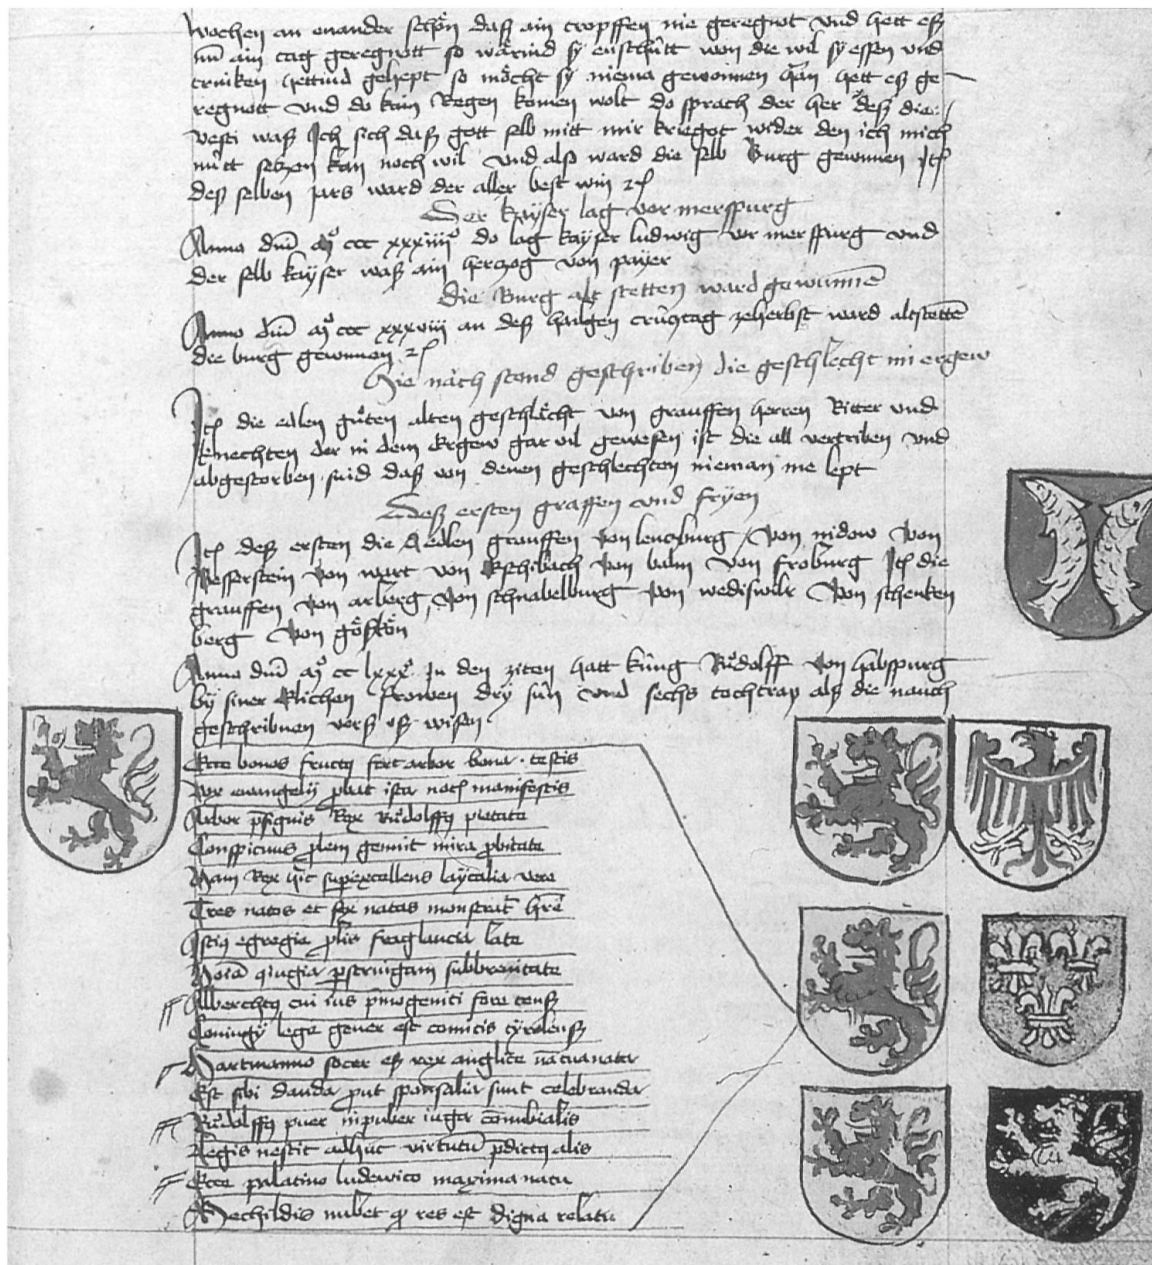 wochen an enander schön daß ain tropffen nie geregnot vnd hett eß
nun ain tag geregnott so wärind sy enschütt won die wil sy essen vnd
trinken hettind gehept so möcht sy niema gewonnen han hett eß ge
regnott vnd do kain Regen komen wolt do sprach der her deß die
vesti waß Ich sich daß gott selb mitt mir kriegot wider den ich mich
nütt setzen kan noch wil vnd also ward die selb Burg gewonnen Itē
deß selben jars ward der aller best win
Der kayser lag vor merspurg
Anno dnī mͦ ccc xxxiiiiͦ do lag kayser ludwig vor merspurg vnd
der selb kayser waß ain hertzog von payer
Die Burg alt stetten ward gewunnē
Anno dnī mͦ ccc xxxviii an deß hailgen crütztag ze herbst ward altstettē
die burg gewonnen
Hie näch stond geschriben die geschlecht in ergew
Itē die edlen güten alten geschlächt von grauffen herren Ritter vnd
knechten der in dem Ergew gar vil gewesen ist die all vertriben vnd
abgestorben sind daß von denen geschlechten nieman me lept
Deß ersten graffen vnd fryen
Itē deß ersten die Edlen grauffen von lentzburg von nidow von
wesserstein von wart von Eschibach von balm von froburg Itē die
grauffen von arberg von schnabelburg von wediswilr von schenken
berg von göskön
Anno dnī mͦ cc lxxxͦ In den ziten hatt küng Rüdolff von habspurg
by siner Elichen frowen dry sün vnd sechs tochtran alß die nauch
geschribnen verß vß wisen
Ecce bonos fructus fert arbor bona testis
Lex ewangelij probat ista notis manifestis
Arbor prsignis Rex Rüdolffus pietate
Conspicuus prolem genuit mira probitate
Nam Rex hic superexcellens laycalia vere
Tres natos et sex natas monstratr hrē
Istius egregie prolis fraglancia late
perstringam subbreuitate
Alberchtus cui ius primogeniti fore
Coniugii lege gener est comitis tyrolensis
Hartmanno socer eß rex anglie nataanata
Est sibi danda prout sponsalia sunt celebranda
Rüdolffus puer inpuber iuga connubialis
Legis nescit adhuc virtutū predictus alis
Ecce palatino ludewico maxima natu
Mechildis nubet res est digna relatu